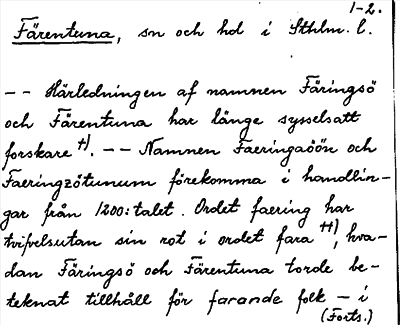 1-2.
Färentuna, sn och hd i Sthlm. l.
-- Härledningen af namnen Färingsö
och Färentuna har länge sysselsatt
forskare +). -- Namnen Faeringaöön och
Faeringzötunum förekomma i handlin-
gar från 1200:talet. Ordet faering har
tvifvelsutan sin rot i ordet fara ++), hva-
dan Färingsö och Färentuna torde be-
teknat tillhåll för farande folk - i
(Forts.)